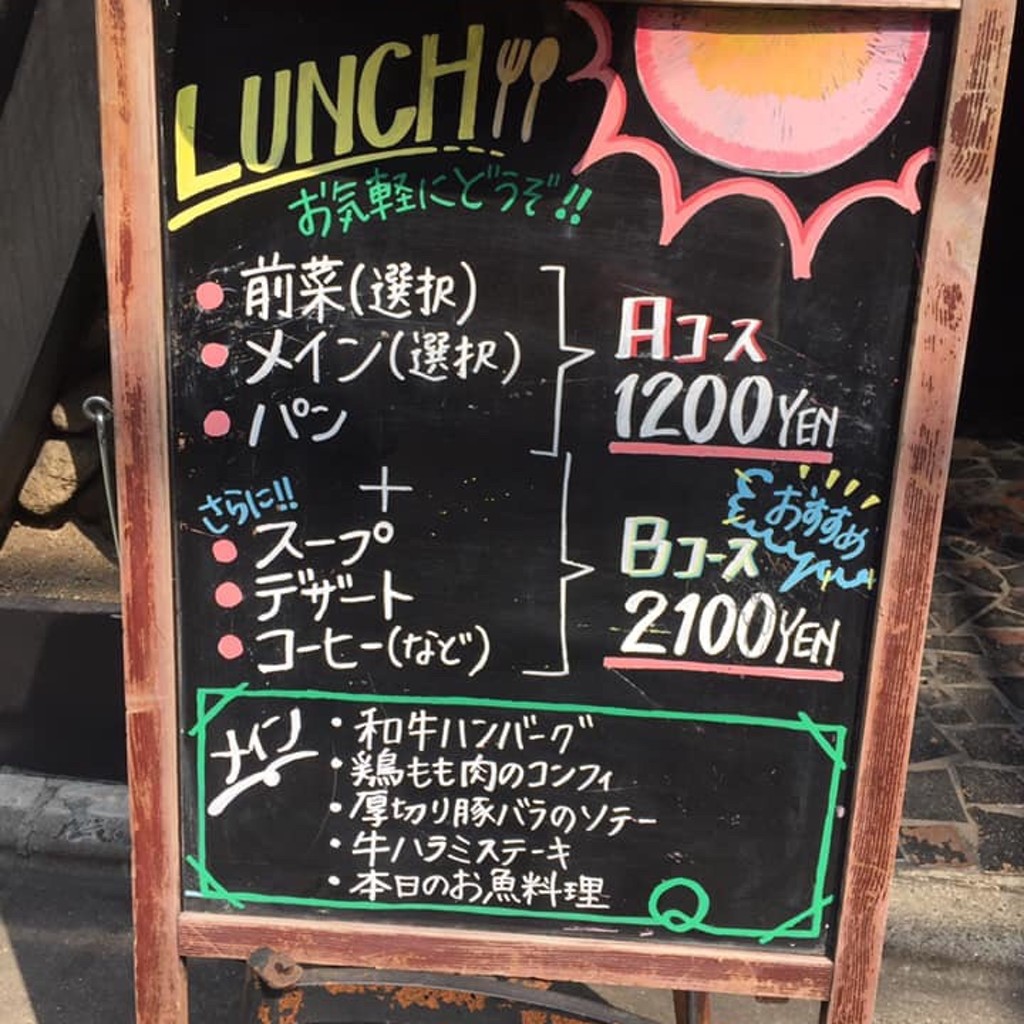 LUNCH
お気軽にどうぞ!!
前菜(選択)
メイン(選択)
パン
Aコース
1200YEN
+
さらに!!
スープ
デザート
コーヒー(など)
おすすめ
Bコース
2100YEN
メイン
・和牛ハンバーグ
・鶏もも肉のコンフィ
・厚切り豚バラのソテー
・牛ハラミステーキ
・本日のお魚料理